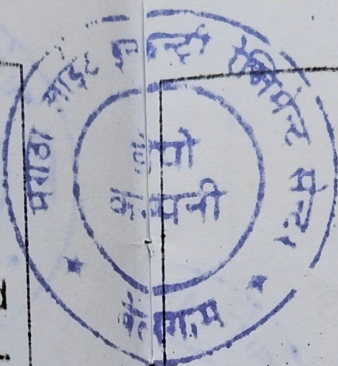 मराठा लाईट इन्फन्ट्री रेजिमेन्ट सेन्टर
डेपो
कम्पनी
बेलगाम